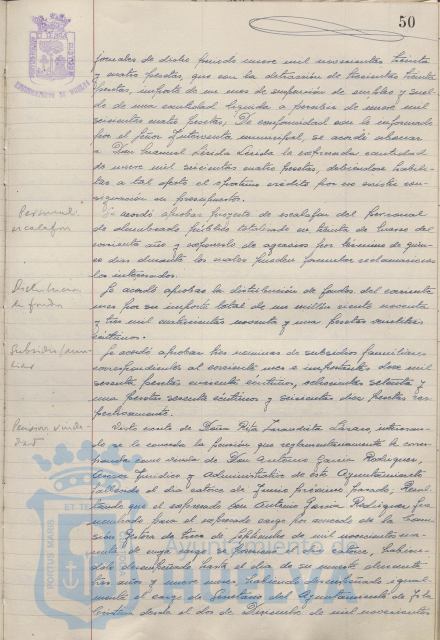 50
jornales de dicho período nueve mil novecientas treinta
y cuatro pesetas, que con la detracción de trescientas treinta
pesetas, importe de un mes de suspensión de empleo y suel-
do da una cantidad líquida a percibir de nueve mil
seiscientas cuatro pesetas. De conformidad con lo informado
por el Señor Interventor municipal, se acordó abonar
a Don Manuel Lérida Lérida la expresada cantidad
de nueve mil seiscientas cuatro pesetas, debiéndose habili-
tar a tal efecto el oportuno crédito por no existir con-
signación en presupuesto.
Personal
escalafón
Se acordó aprobar proyecto de escalafón del Personal
de alumbrado público totalizado en treinta de Marzo del
corriente año y exponerlo de agravios por término de quin-
ce días durante los cuales pueden formular reclamaciones
los interesados.
Distribución
de fondos
Se acordó aprobar la distribución de fondos del corriente
mes por su importe total de un millón ciento noventa
y tres mil cuatrocientas noventa y una pesetas
céntimos.
Subsidio fami-
liar
Se acordó aprobar tres nóminas de subsidios familiares
correspondientes al corriente mes e importantes doce mil
sesenta pesetas cuarenta céntimos, ochocientas setenta y
una pesetas sesenta céntimos y seiscientas diez pesetas res-
pectivamente.
Pensión viude-
dad
Visto escrito de Doña Rita, interesan-
do se le conceda la pensión que reglamentariamente le corres-
ponda como viuda de Don Antonio García Rodríguez,
Asesor Jurídico y Administrativo de este Ayuntamiento
fallecido el día catorce de Junio próximo pasado, Resul-
tando que el expresado don Antonio García Rodríguez fue
nombrado para el expresado cargo por acuerdo de la Comi-
sión Gestora de trece de Septiembre de mil novecientos
de cuyo cargo se posesionó el catorce, habién-
dolo desempeñado hasta el día de su muerte durante
tres años y nueve meses, habiendo desempeñado igual-
mente el cargo de Secretario del Ayuntamiento de
desde el dos de Diciembre de mil novecientos
Ayuntamiento de
PORTUS MARIS
ET TERRAE